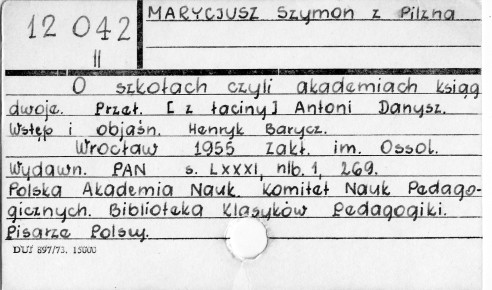 12 042
II
MARYCJUSZ Szymon z Pilzna
O szkołach czyli akademiach ksiąg
dwoje. Przeł. [z łaciny] Antoni Danysz.
Wstęp i objaśn. Henryk Barycz.
Wrocław 1955 Zakł. im. Ossol.
Wydawn. PAN s. LXXXI, nlb. 1, 269.
Polska Akademia Nauk. Komitet Nauk Pedago-
gicznych. Biblioteka Klasyków Pedagogiki.
Pisarze Polscy.
DUJ 897/73. 15000